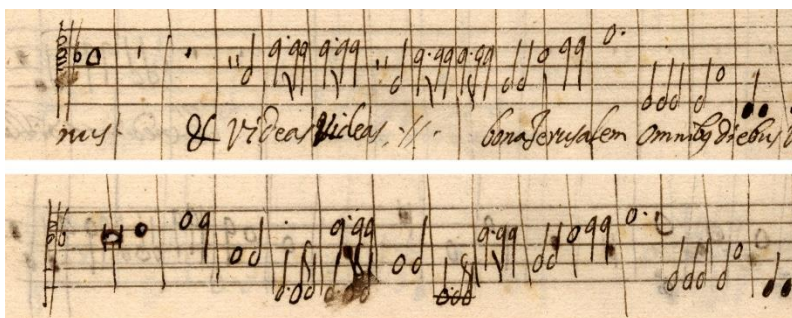 nus. & Videas Videas .//. bona Jerusalem omnibq diebus